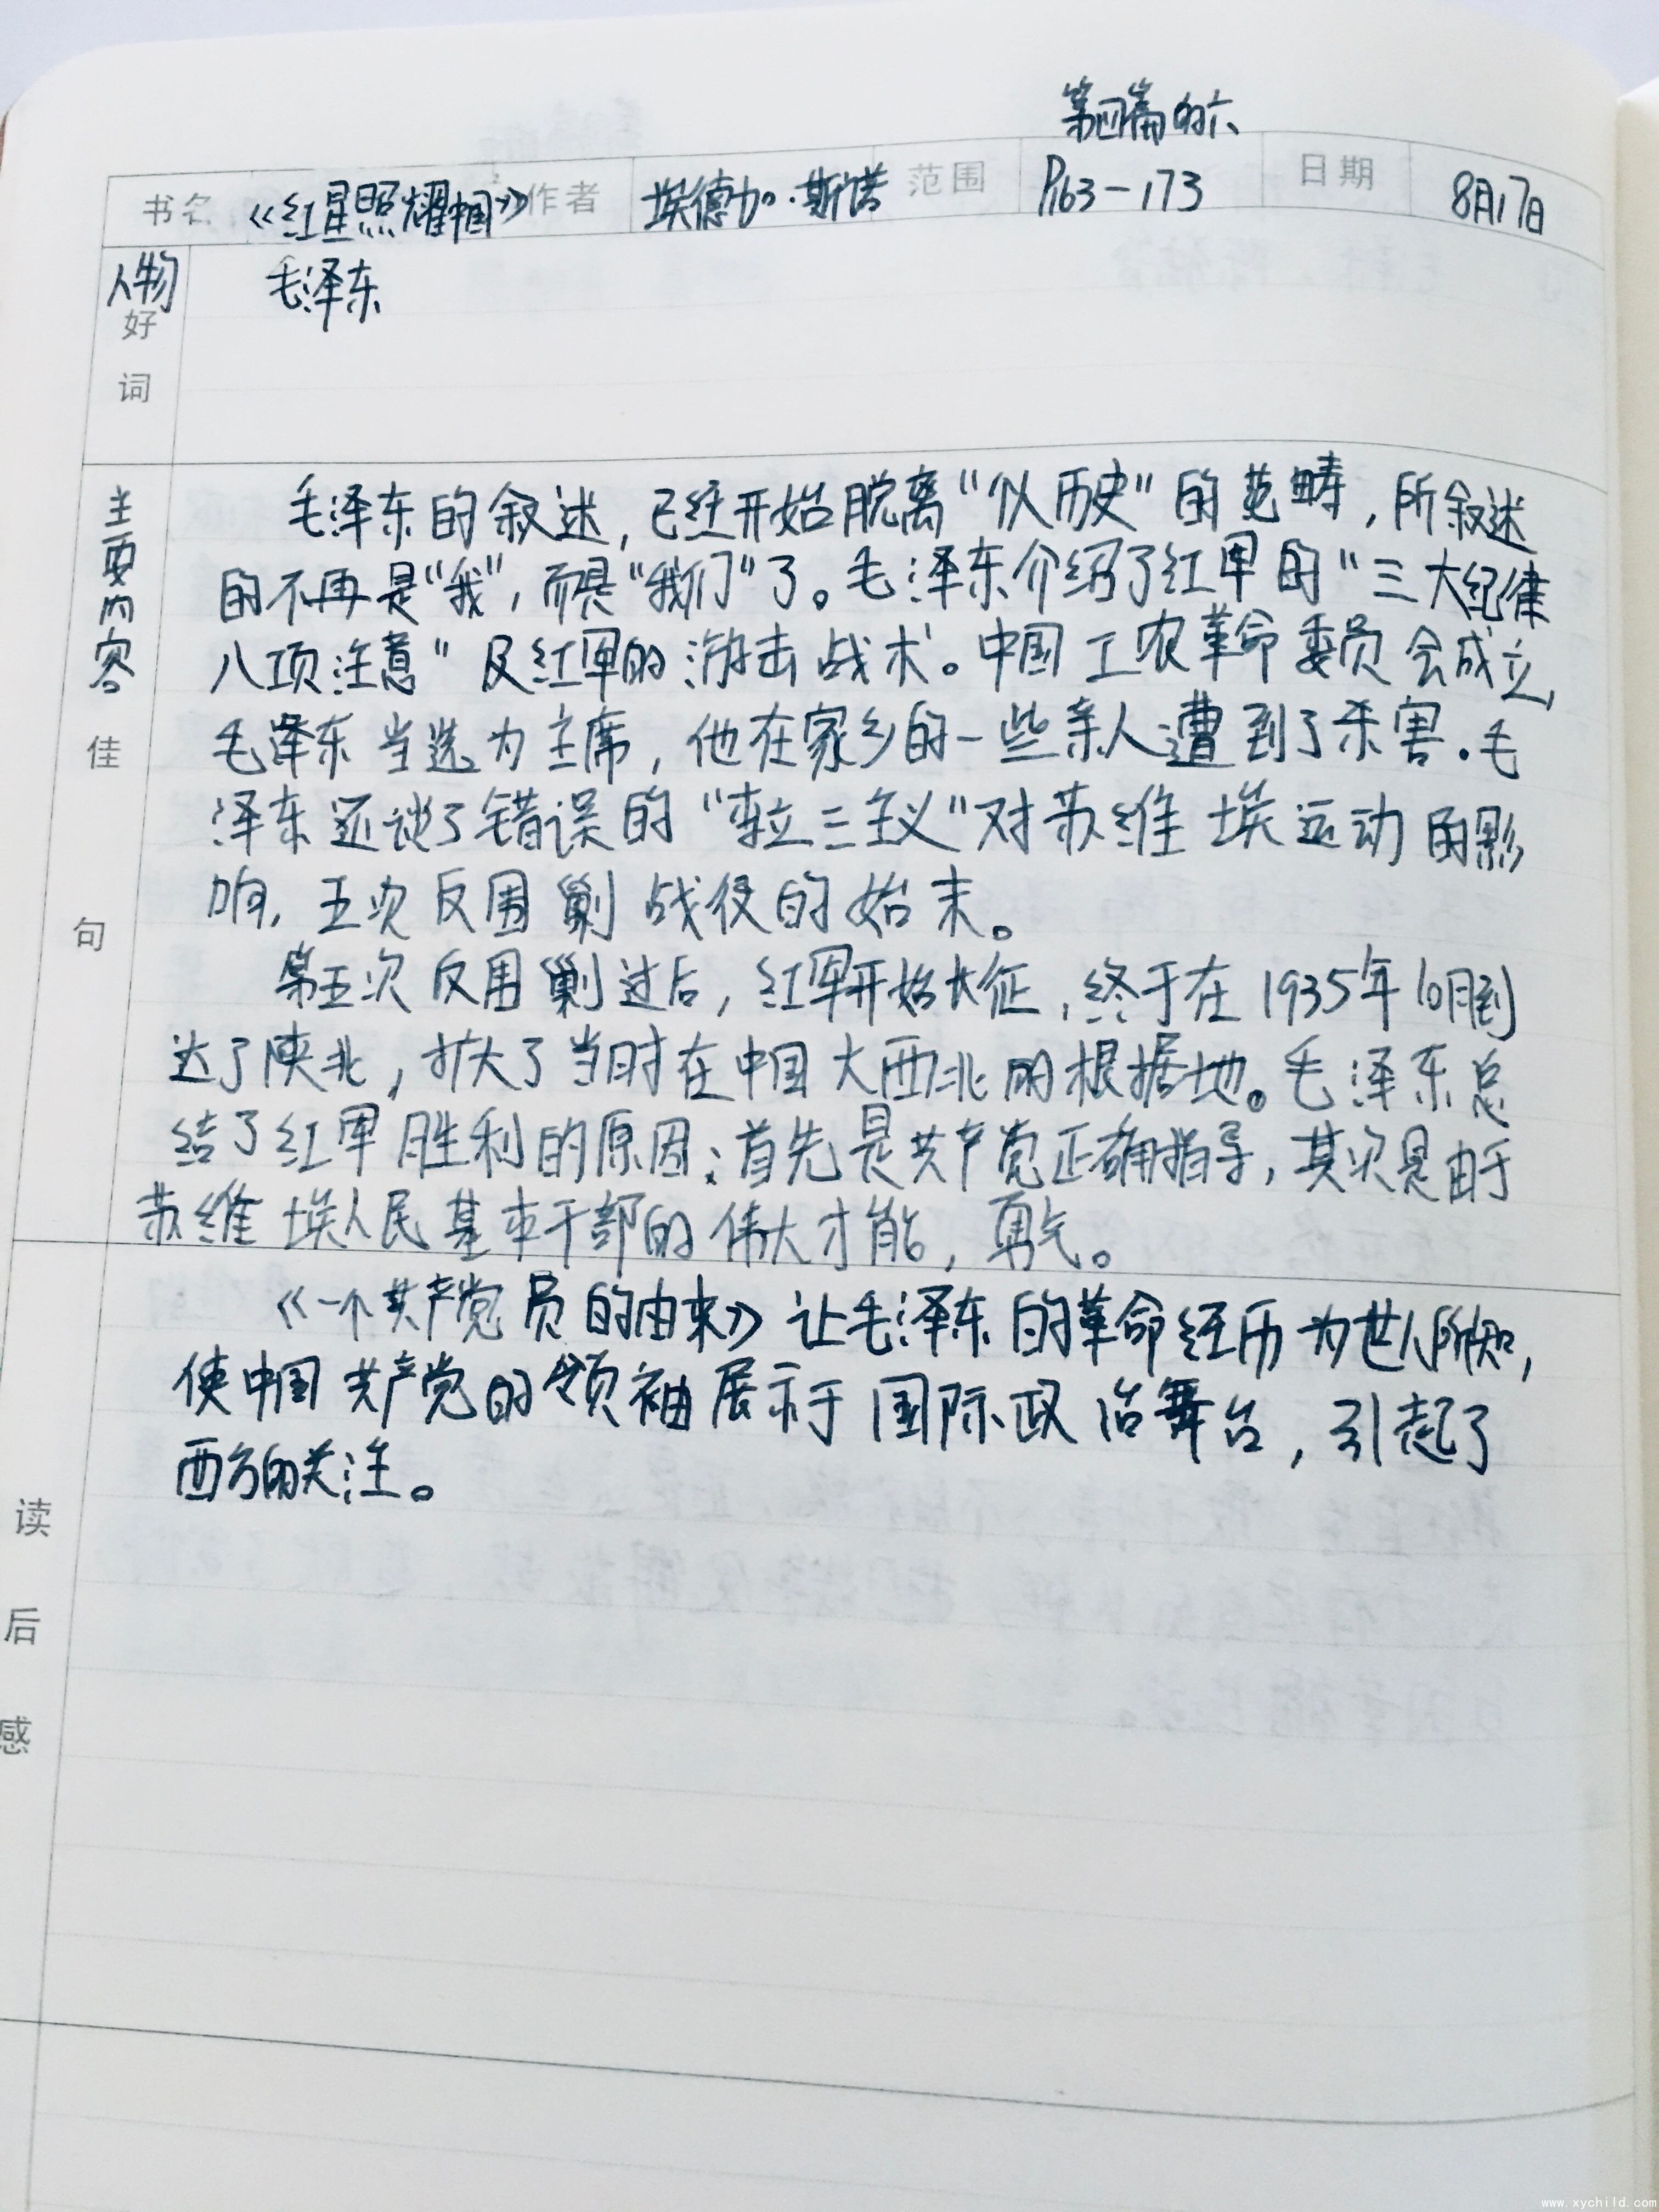 第四篇的六
书名 《红星照耀中国》 作者 埃德加·斯诺 范围 P163-173 日期 8月17日
人物 毛泽东
好
词
主要内容
佳
句
毛泽东的叙述，已经开始脱离“个人历史”的范畴，所叙述
的不再是“我”，而是“我们”了。毛泽东介绍了红军的“三大纪律
八项注意”及红军的游击战术。中国工农革命委员会成立，
毛泽东当选为主席，他在家乡的一些亲人遭到了杀害。毛
泽东还谈了错误的“李立三主义”对苏维埃运动的影
响，五次反围剿战役的始末。
第五次反围剿过后，红军开始长征，终于在1935年10月到
达了陕北，扩大了当时在中国大西北的根据地。毛泽东总
结了红军胜利的原因：首先是共产党正确指导，其次是由于
苏维埃人民基本干部的伟大才能，勇气。
读
后
感
《一个共产党员的由来》让毛泽东的革命经历为世人所知，
使中国共产党的领袖展示于国际政治舞台，引起了
西方的关注。
www.xychild.com